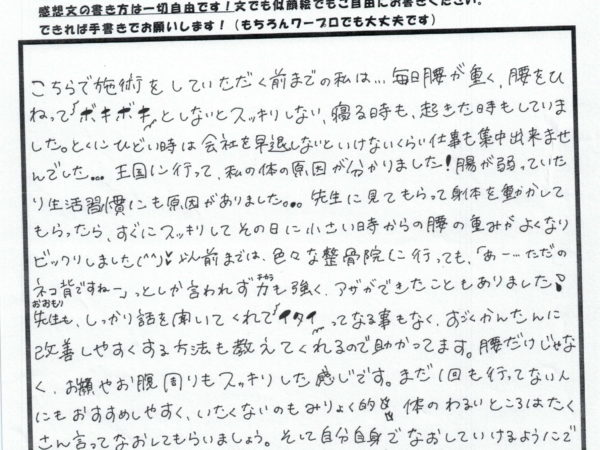 感想文の書き方は一切自由です!文でも似顔絵でもご自由にお書きください。
できれば手書きでお願いします!(もちろんワープロでも大丈夫です)
こちらで施術をしていただく前までの私は…毎日腰が重く、腰をひ
ねって「ボキボキ」としないとスッキリしない、寝る時も、起きた時もしていま
した。とくにひどい時は会社を早退しないといけないくらい仕事も集中出来ませ
んでした…王国に行って、私の体の原因が分かりました!腸が弱ってい
り生活習慣にも原因がありました。。。先生に見てもらって身体を動かして
もらったら、すぐにスッキリしてその日に小さい時からの腰の重みがよくなり
ビックリしました(^^)♥ 前までは、色々な整骨院に行っても、「あー…ただの
ネコ背ですねー」っとしか言われず力も強く、アザができたこともありました
おおもり
先生は、しっかり話を聞いてくれて「イタイ」ってなる事もなく、すごくかんたんに
改善しやすくする方法も教えてくれるので助かってます。腰だけじゃな
く、お顔やお腹周りもスッキリした感じです。まだ1回も行ってない人
にもおすすめしやすく、いたくないのもみりょく的 体のわるいところはたく
さん言ってなおしてもらいましょう。そして自分自身でなおしていけるようにで